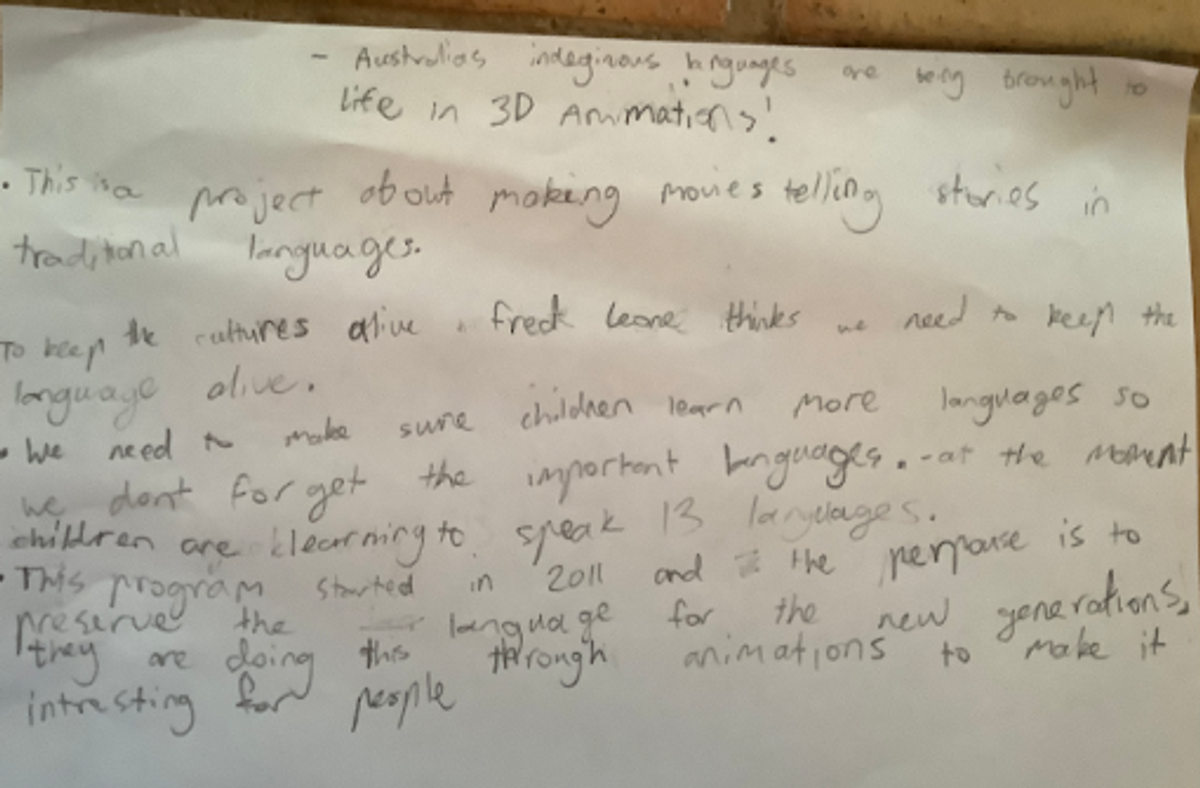 - Australias indeginous languages are being brought to
life in 3D Animations!
• This is a project about making movies telling stories in
traditional languages.
To keep the cultures alive. Freck Leone thinks we need to keep the
language alive.
• We need to make sure children learn more languages so
we dont forget the important languages. - at the moment
children are learning to speak 13 languages.
• This program started in 2011 and the perpouse is to
preserve the language for the new generations,
they are doing this through animations to make it
intresting for people